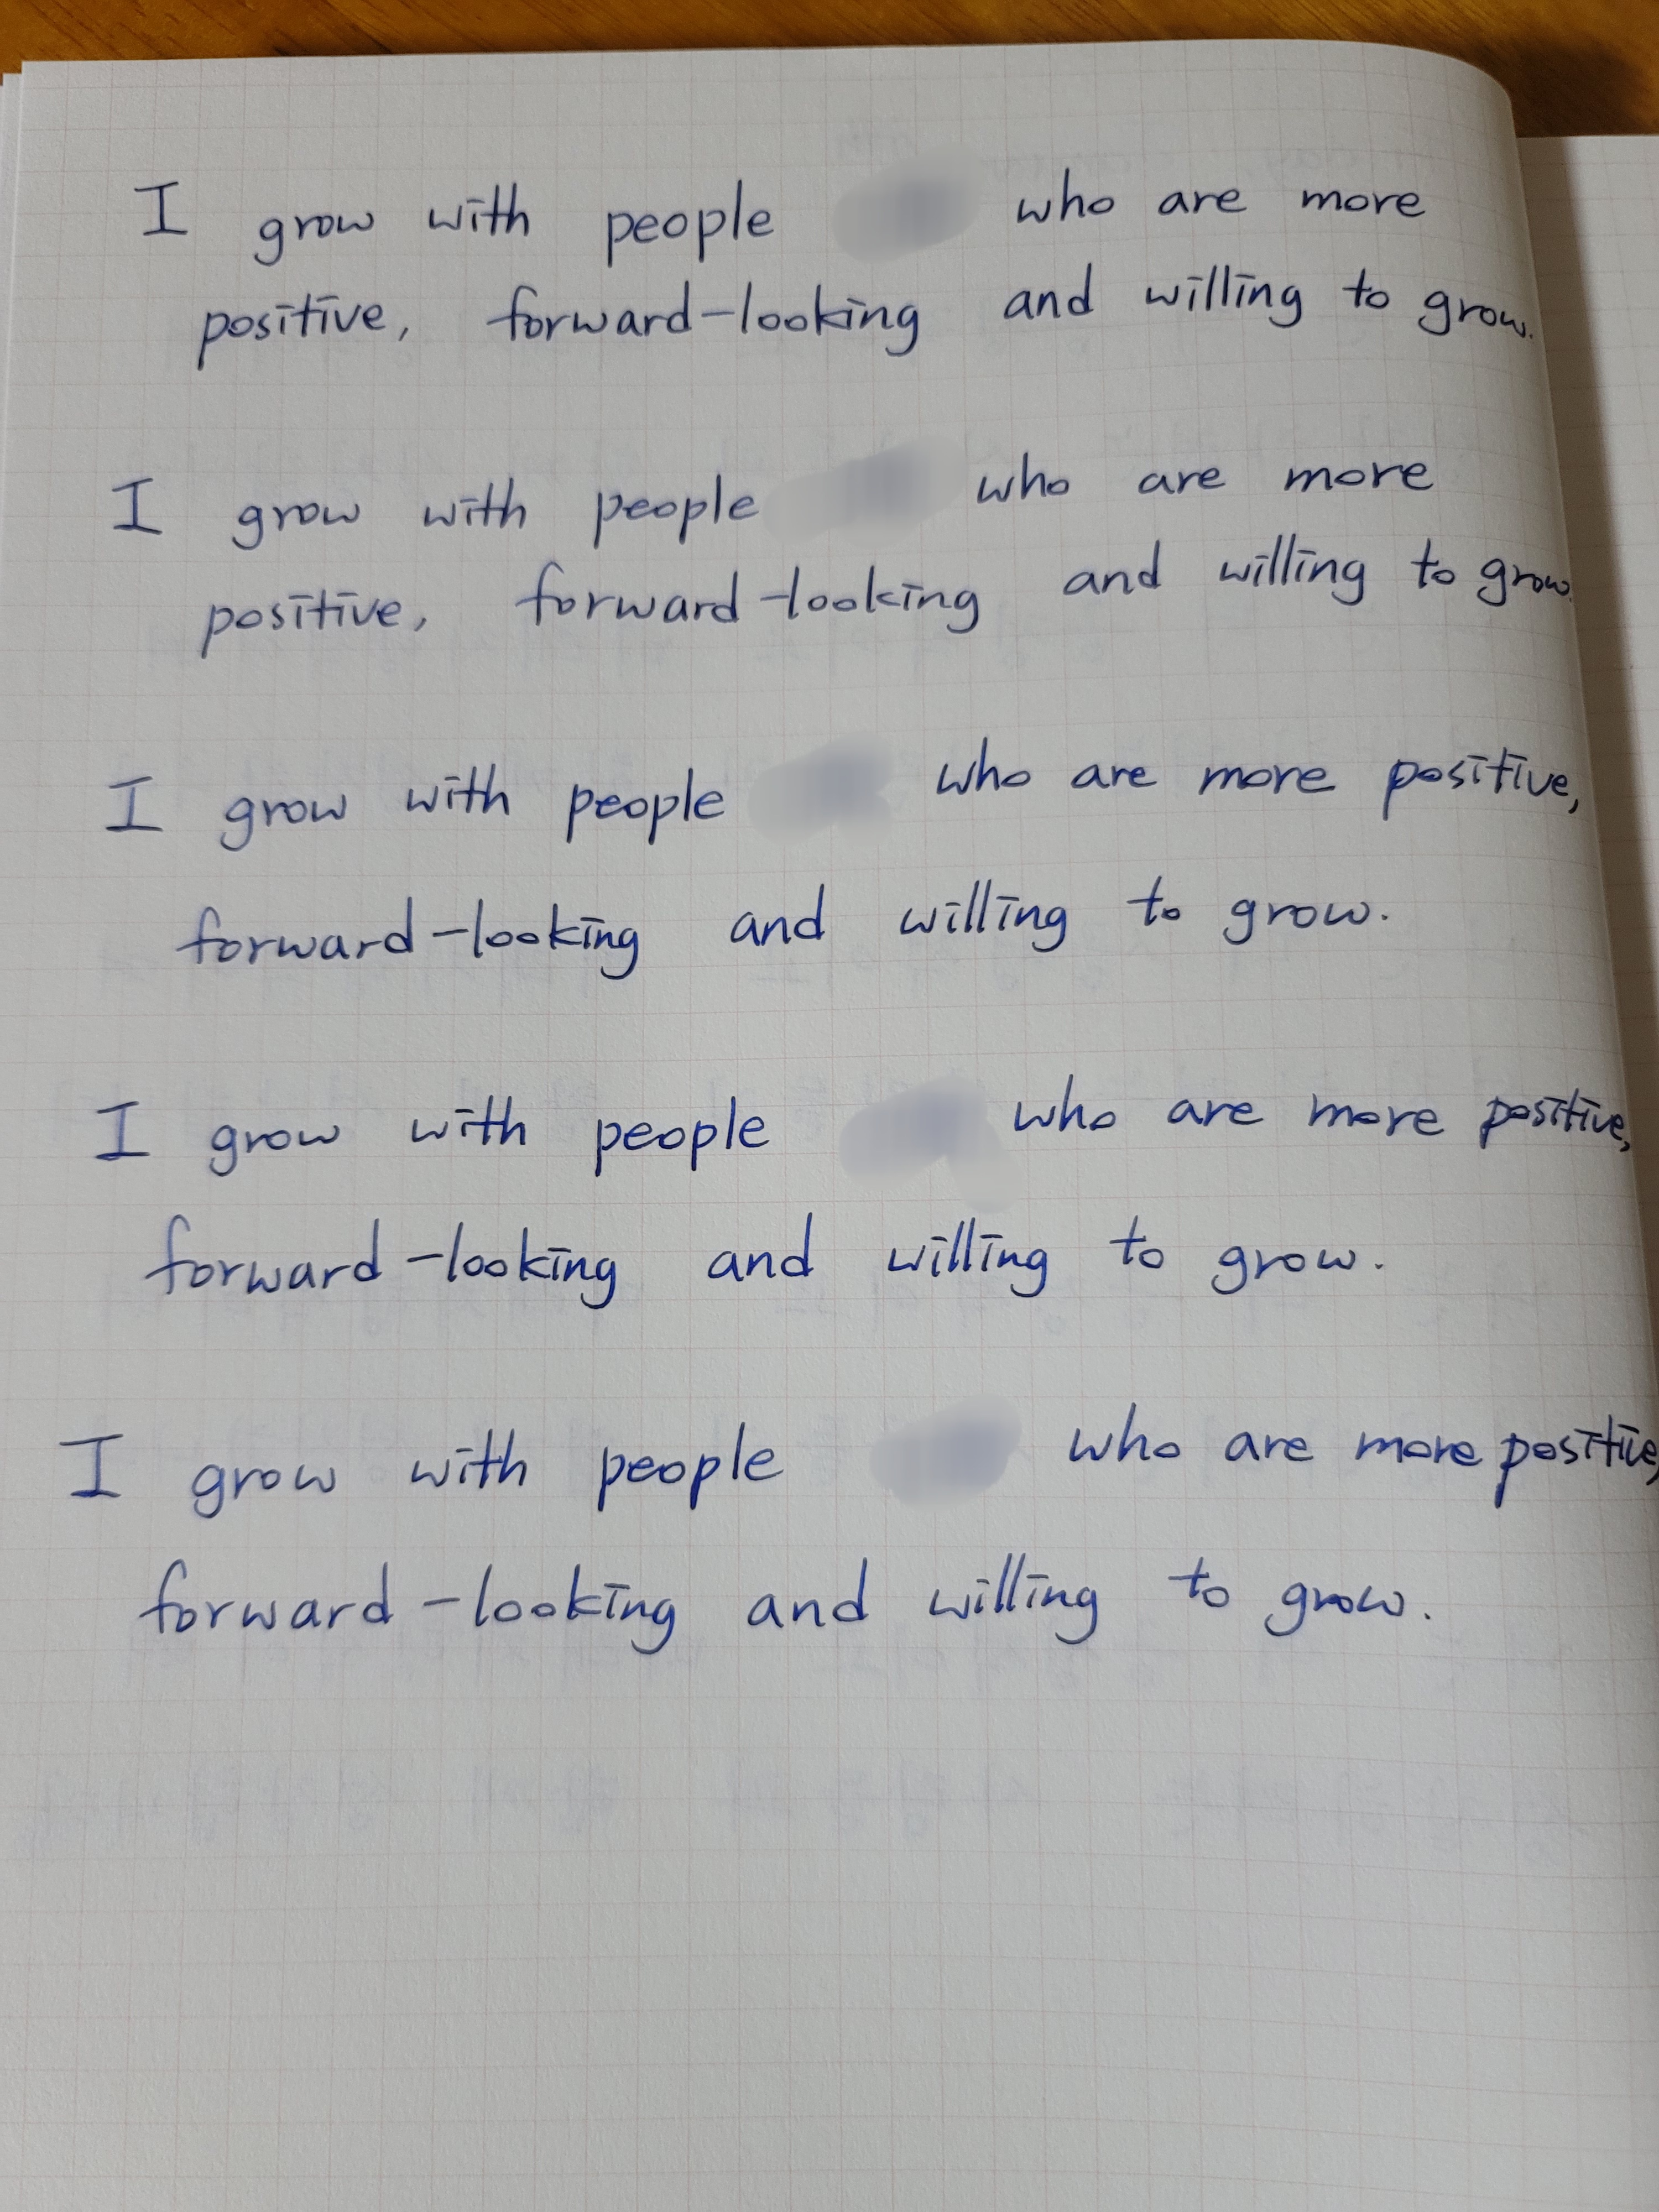 I grow with people who are more
positive, forward-looking and willing to grow.
I grow with people who are more
positive, forward-looking and willing to grow.
I grow with people who are more positive,
forward-looking and willing to grow.
I grow with people who are more positive,
forward-looking and willing to grow.
I grow with people who are more positive,
forward-looking and willing to grow.